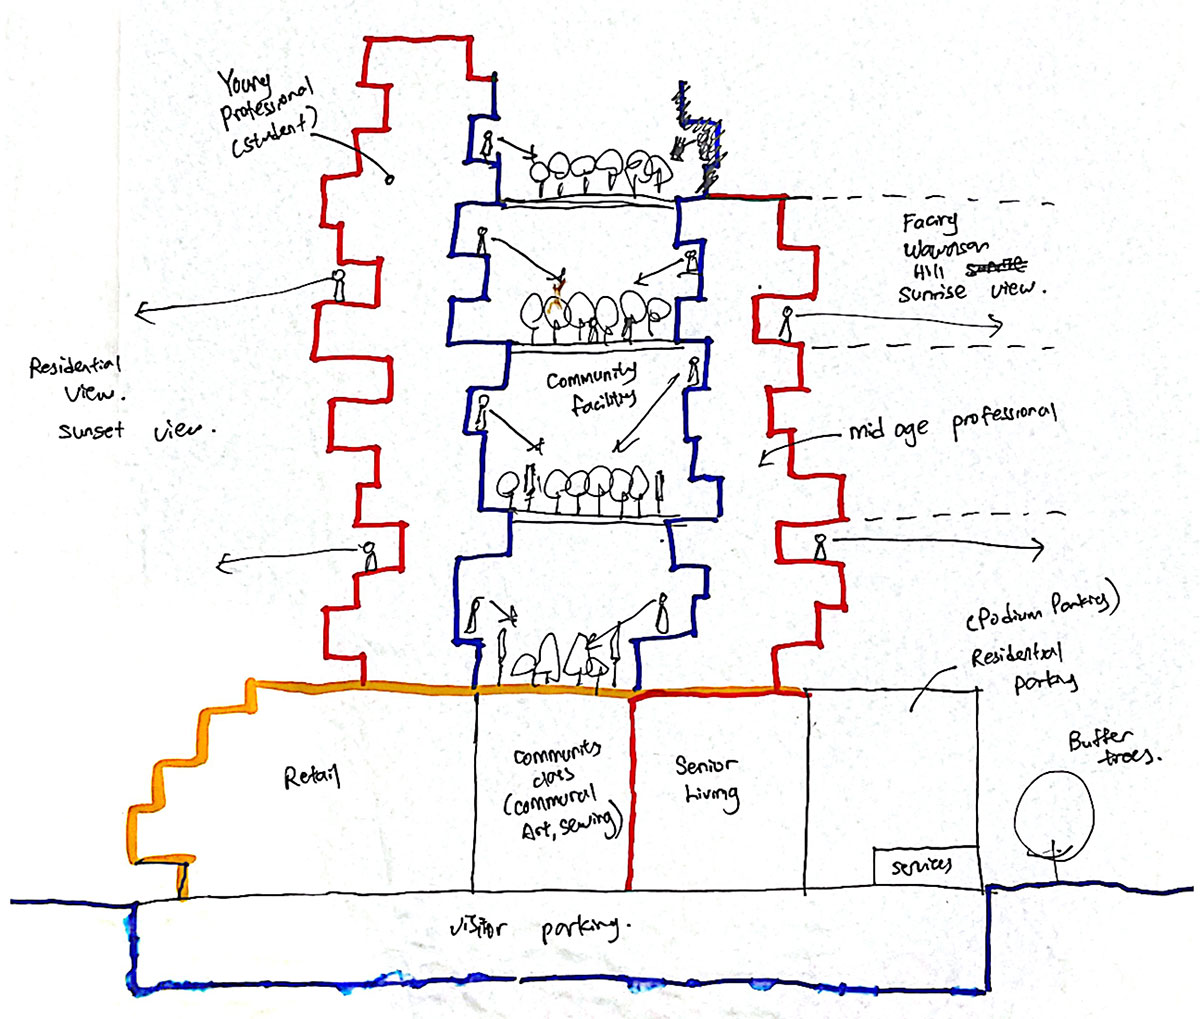 Young
Professional
(student)
Facing
Hill
sunrise view.
Residential
view.
sunset view.
Community
facility
mid age professional
(Podium Parking)
Residential
parking
Buffer
trees.
Retail
Community
class
(communal
Art, sewing)
Senior
Living
services
visitor parking.